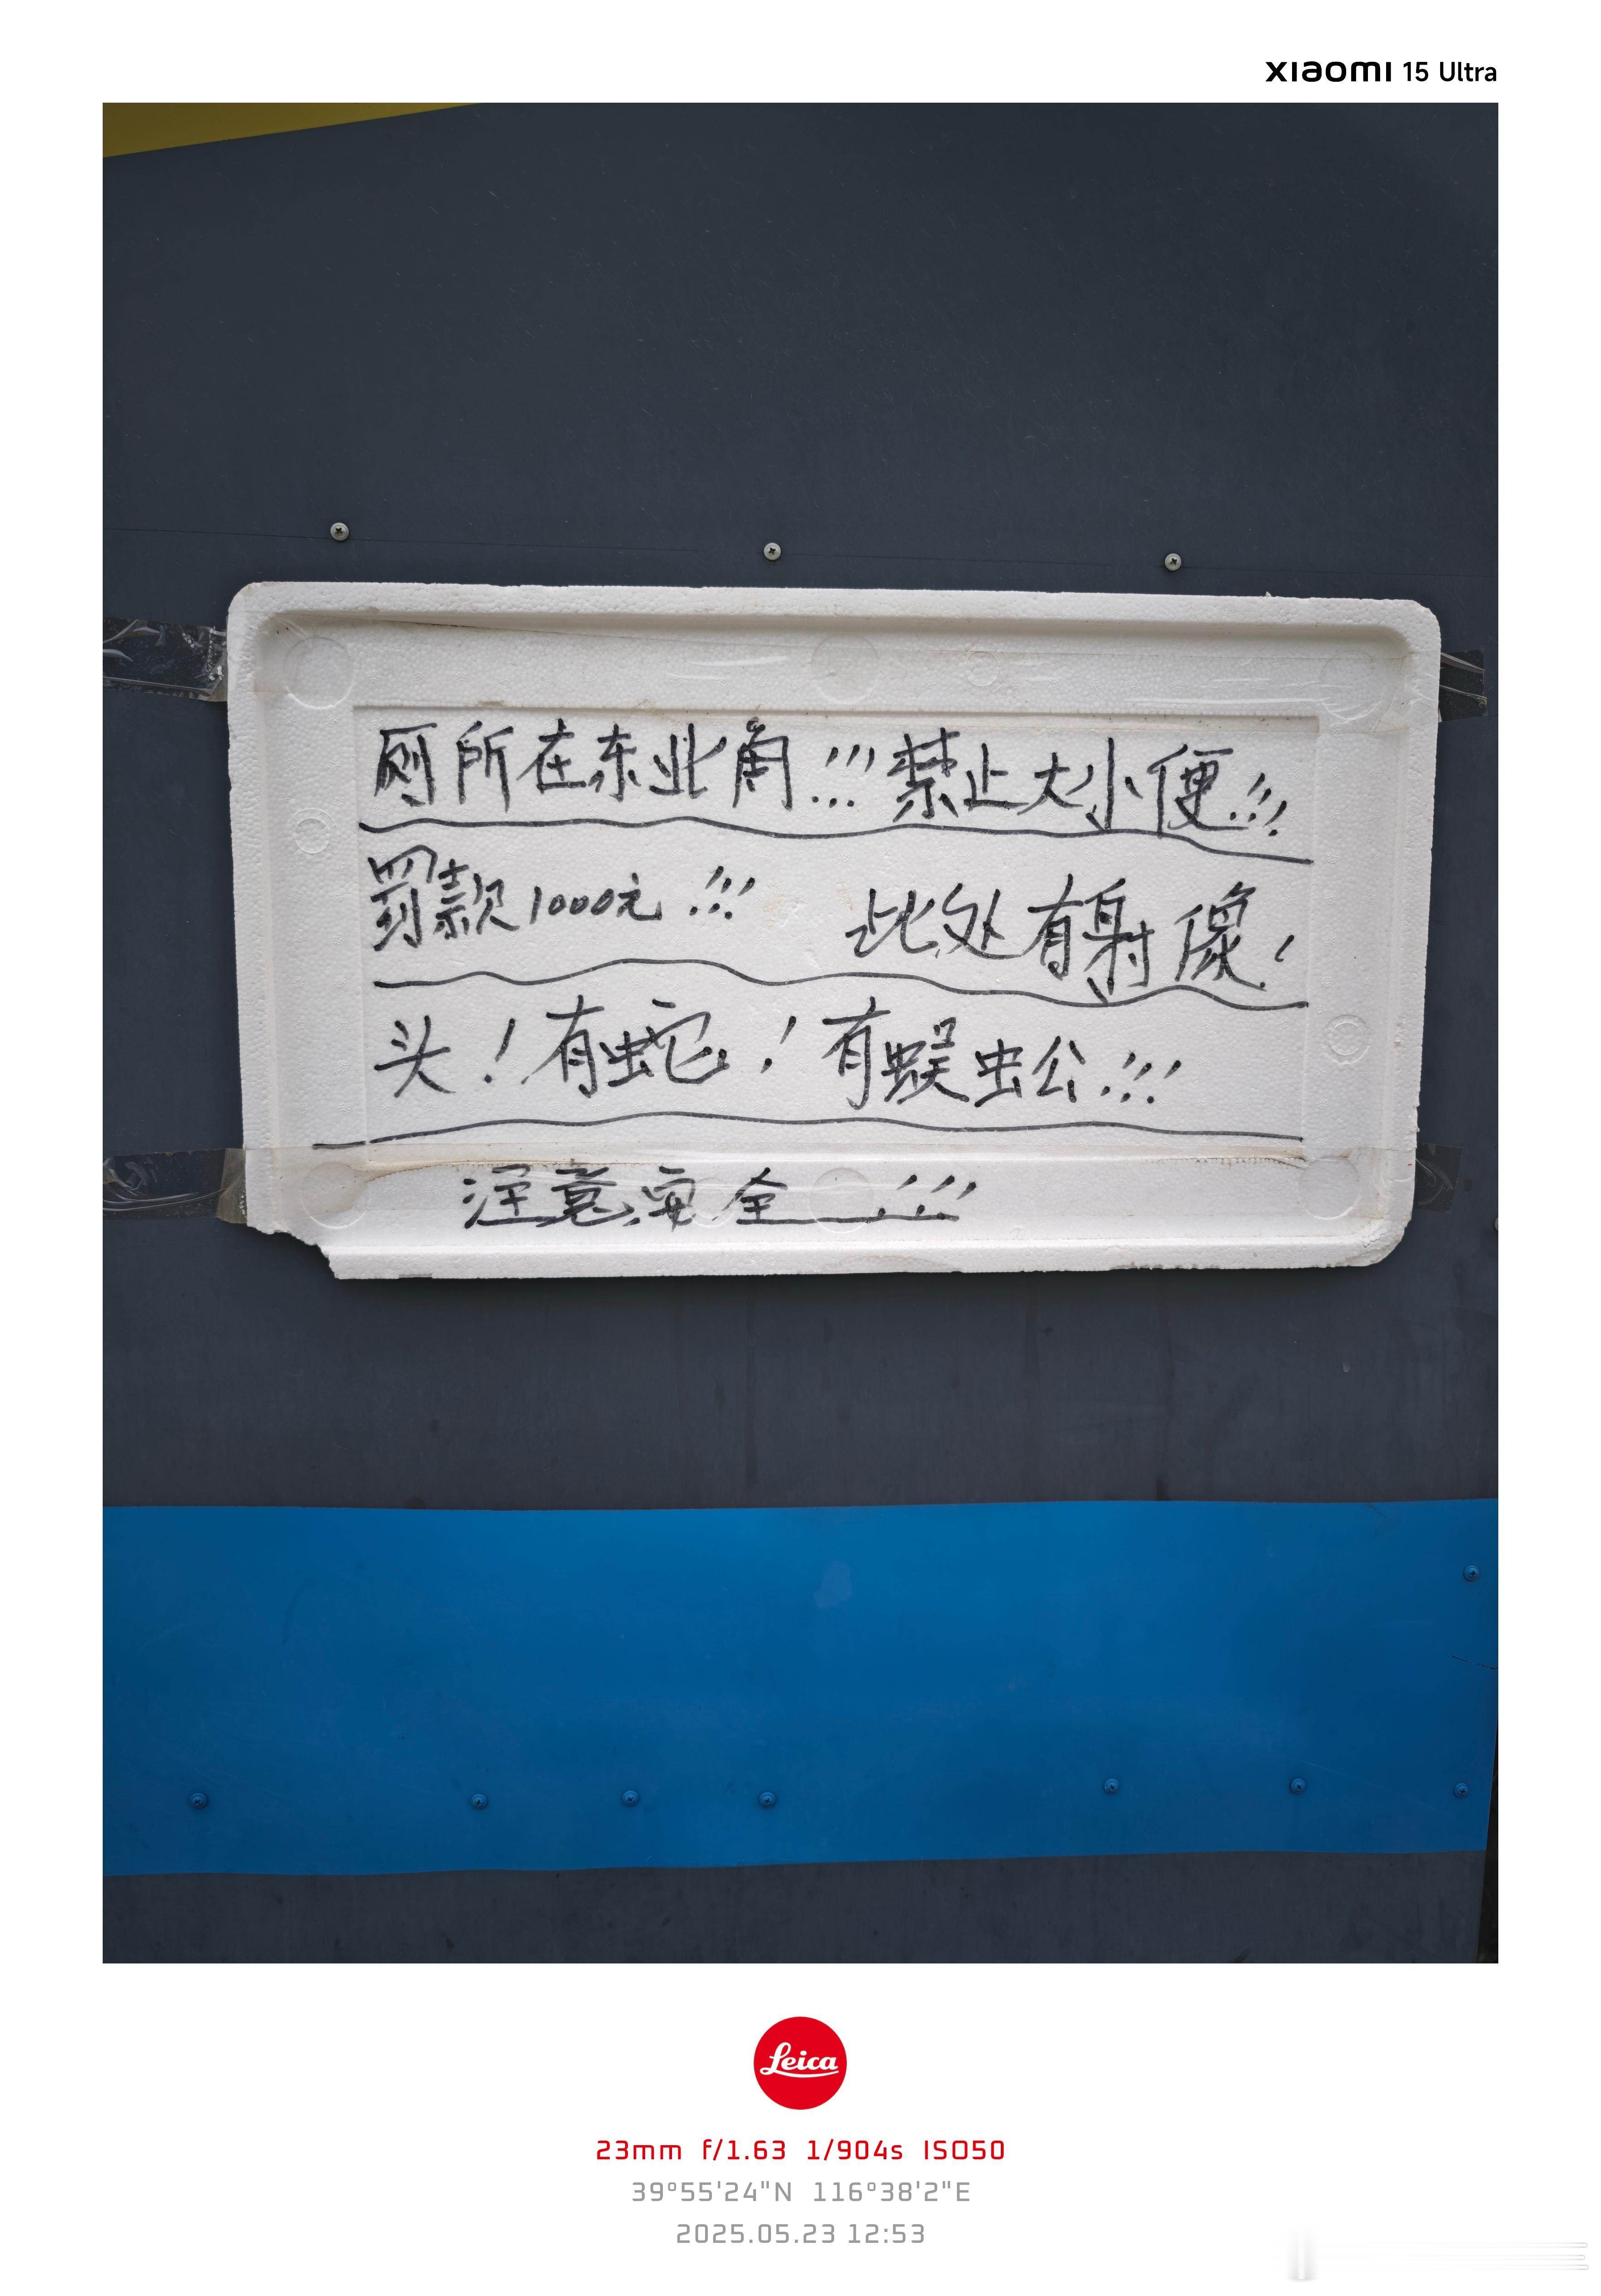 xiaomi 15 Ultra
厕所在东北角!!!禁止大小便!!!
罚款1000元!!! 此处有射像!
头!有蛇!有蜈虫公!!!
注意安全!!!
Leica
23mm f/1.63 1/904s ISO50
39°55'24"N 116°38'2"E
2025.05.23 12:53